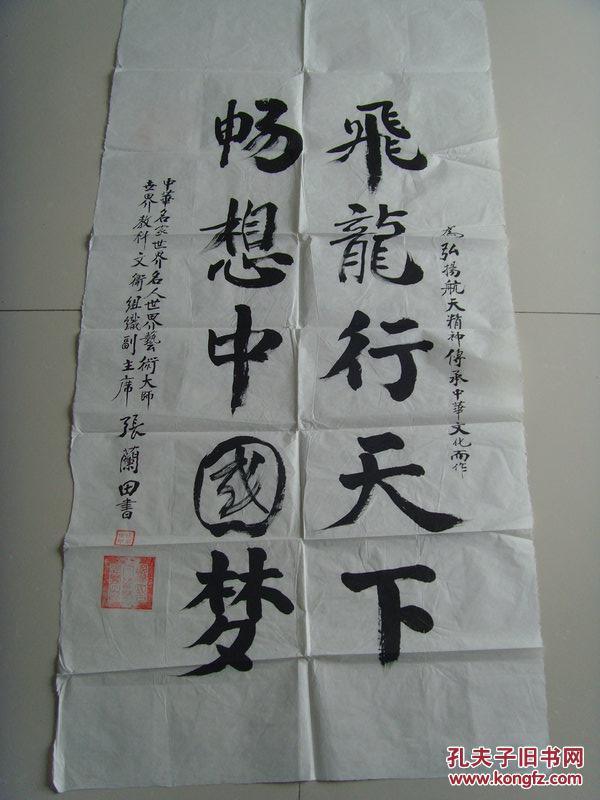 为弘揚航天精神傳承中華文化而作
飛龍行天下
畅想中國梦
中華名家世界名人世界藝術大師
世界教科文術組織副主席 張蘭田書
孔夫子旧书网
www.kongfz.com